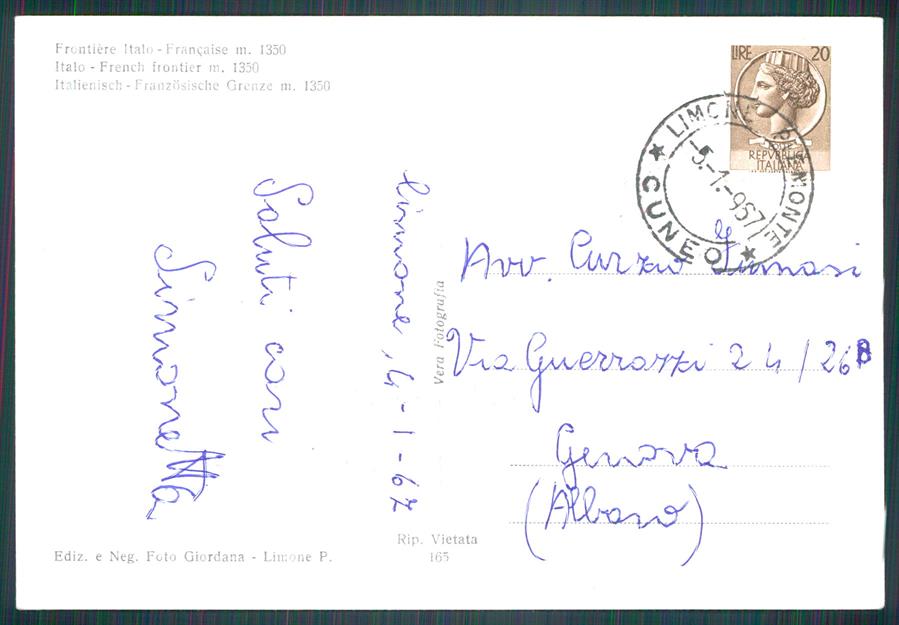 Frontière Italo - Française m. 1350
Italo - French frontier m. 1350
Italienisch - Französische Grenze m. 1350
LIRE 20
REPVBBLICA
ITALIANA
LIMONE PIEMONTE
-5.-1.-967
★ CUNEO ★
Limone, 4-1-67
Saluti cari
Simonetta
Vera Fotografia
Avv. Curzio
Via Guerrazzi 24/26B
Genova
(Albaro)
Rip. Vietata
165
Ediz. e Neg. Foto Giordana - Limone P.